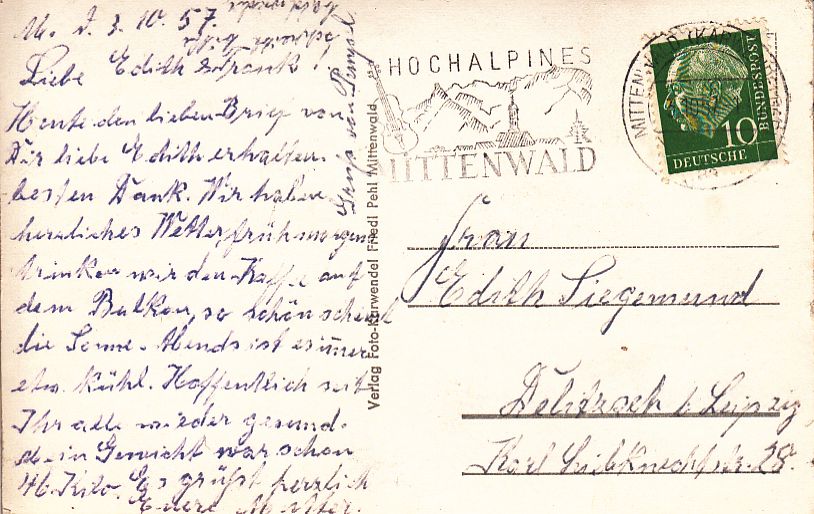 M. d. 3. 10. 57.
Liebe Edith & Frank!
Heute den lieben Brief von
Dir liebe Edith erhalten.
besten Dank. Wir haben
herrliches Wetter früh morgens
trinken wir den Kaffee auf
dem Balkon, so schön scheint
die Sonne. Abends ist es immer
etw. kühl. Hoffentlich seit
Ihr alle wieder gesund.
Mein Gewicht war schon
46 Kilo. Es grüßt herzlich
Euere Mutter.
Gruß von
Verlag Foto-Karwendel Friedl Pehl Mittenwald
HOCHALPINES
MITTENWALD
MITTENWALD (KAR
10
DEUTSCHE
BUNDESPOST
Frau
Edith Siegemund
Delitzsch b. Leipzig
Karl Liebknechtstr. 28.